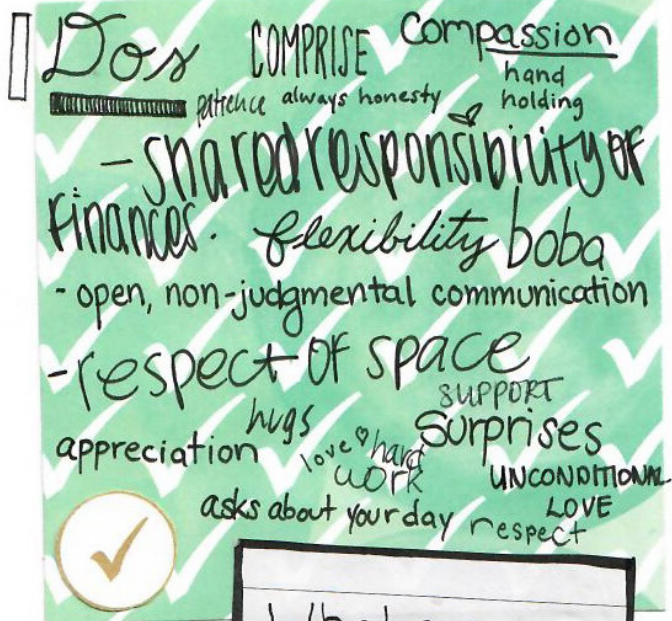 Dos COMPRISE Compassion
patience always honesty hand
holding
- shared responsibility of
Finances. flexibility boba
- open, non-judgmental communication
- respect of space
SUPPORT
hugs Surprises
appreciation love hard
work UNCONDITIONAL
LOVE
asks about your day respect